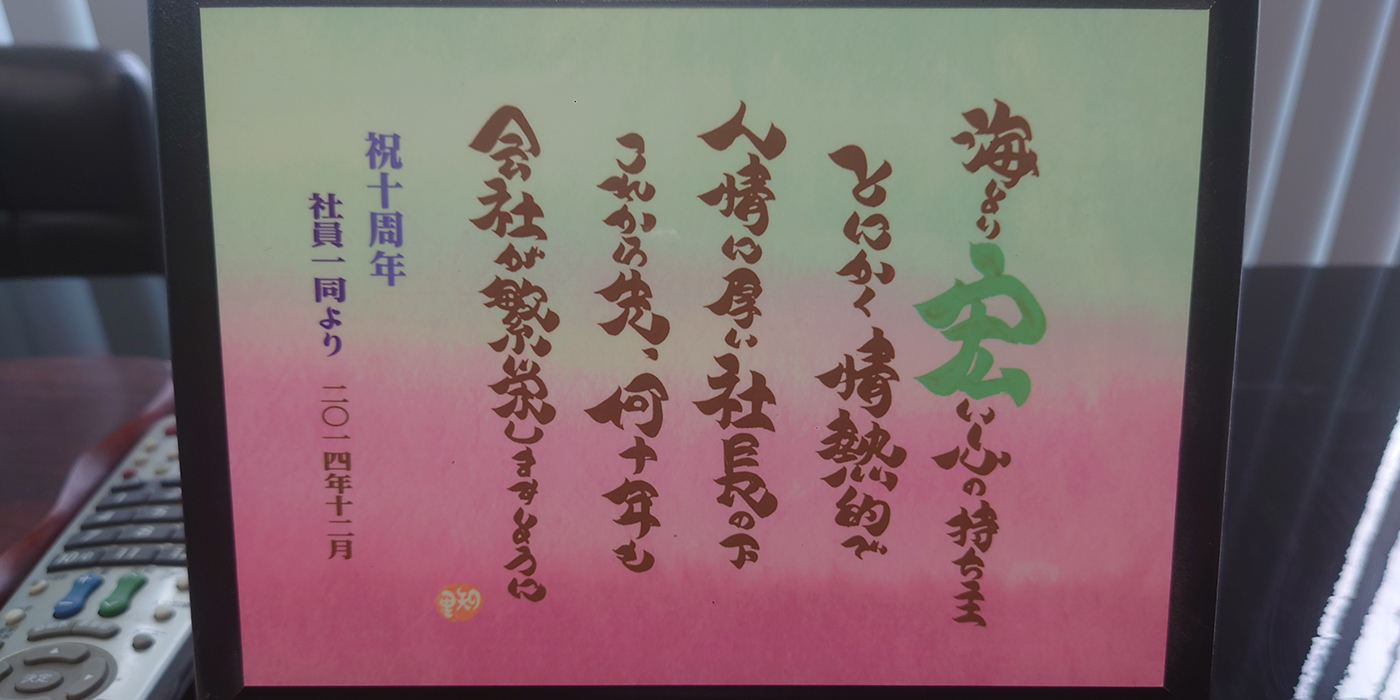 海より宏い心の持ち主
とにかく情熱的で
人情に厚い社長の下
これから先、何十年も
会社が繁栄しますように
祝十周年
社員一同より 二〇一四年十二月
知里
決定